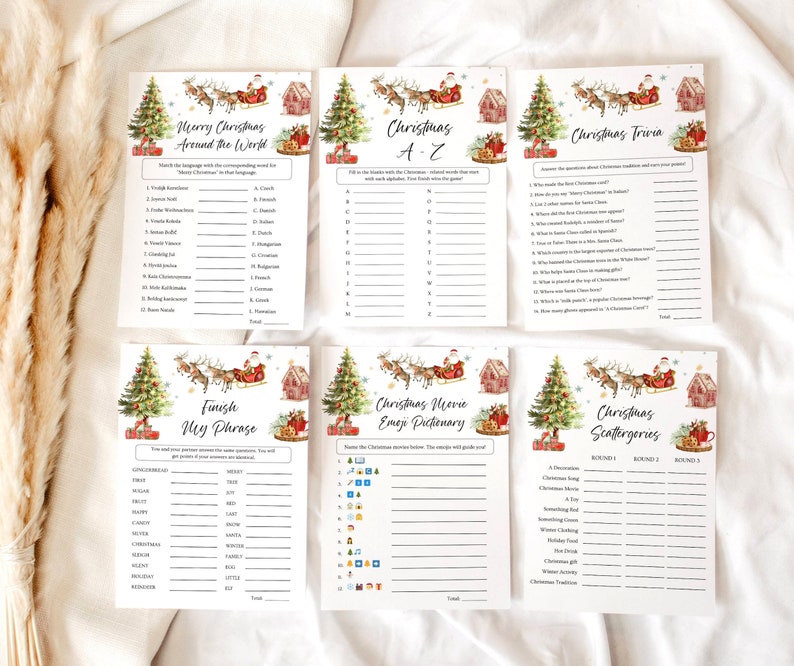 Merry Christmas
Around the World
Match the language with the corresponding word for
"Merry Christmas" in that language.
1. Vrolijk Kerstfeest A. Czech
2. Joyeux Noël B. Finnish
3. Frohe Weihnachten C. Danish
4. Vesela Koleda D. Italian
5. Sretan Božić E. Dutch
6. Veselé Vánoce F. Hungarian
7. Glædelig Jul G. Croatian
8. Hyvää joulua H. Bulgarian
9. Kala Christouyenna I. French
10. Mele Kalikimaka J. German
11. Boldog karácsonyt K. Greek
12. Buon Natale L. Hawaiian
Total:
Christmas
A - Z
Fill in the blanks with the Christmas - related words that start
with each alphabet. First finish wins the game!
A N
B O
C P
D Q
E R
F S
G T
H U
I V
J W
K X
L Y
M Z
Christmas Trivia
Answer the questions about Christmas tradition and earn your points!
1. Who made the first Christmas card?
2. How do you say "Merry Christmas" in Italian?
3. List 2 other names for Santa Claus.
4. Where did the first Christmas tree appear?
5. Who created Rudolph, a reindeer of Santa?
6. What is Santa Claus called in Spanish?
7. True or False: There is a Mrs. Santa Claus.
8. Which country is the largest exporter of Christmas trees?
9. Who banned the Christmas trees in the White House?
10. Who helps Santa Claus in making gifts?
11. What is placed at the top of Christmas tree?
12. Where was Santa Claus born?
13. Which is "milk punch", a popular Christmas beverage?
14. How many ghosts appeared in "A Christmas Carol"?
Total:
Finish
My Phrase
You and your partner answer the same questions. You will
get points if your answers are identical.
GINGERBREAD MERRY
FIRST TREE
SUGAR JOY
FRUIT RED
HAPPY LAST
CANDY SNOW
SILVER SANTA
CHRISTMAS WINTER
SLEIGH FAMILY
SILENT EGG
HOLIDAY LITTLE
REINDEER ELF
Total:
Christmas Movie
Emoji Pictionary
Name the Christmas movies below. The emojis will guide you!
1.
2.
3.
4.
5.
6.
7.
8.
9.
10.
11.
12.
Total:
Christmas
Scattergories
ROUND 1 ROUND 2 ROUND 3
A Decoration
Christmas Song
Christmas Movie
A Toy
Something Red
Something Green
Winter Clothing
Holiday Food
Hot Drink
Christmas gift
Winter Activity
Christmas Tradition